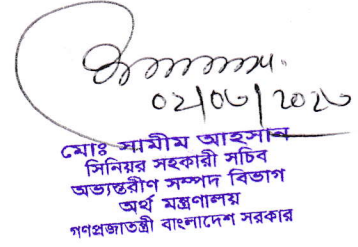 ০২/০৬/২০২৬
মোঃ সামীম আহসান
সিনিয়র সহকারী সচিব
অভ্যন্তরীণ সম্পদ বিভাগ
অর্থ মন্ত্রণালয়
গণপ্রজাতন্ত্রী বাংলাদেশ সরকার